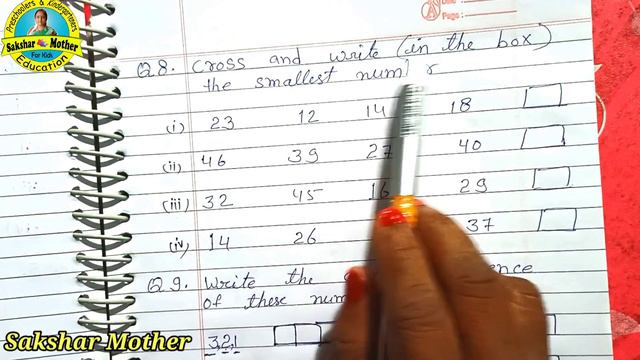 Preschoolers & Kindergartners
Sakshar Mother
For Kids
Education
Page:
Q8. Cross and write (in the box)
the smallest
(i) 23 12 14 18
(ii) 46 39 27 40
(iii) 32 45 16 29
(iv) 14 26 37
Q9. Write the
of these
321
Sakshar Mother